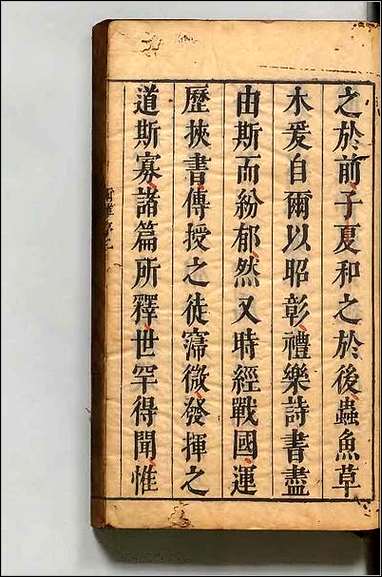 之於前子夏和之於後蟲魚草
木爰自爾以昭彰禮樂詩書盡
由斯而紛郁然又時經戰國運
歷挾書傳授之徒寖微發揮之
道斯寡諸篇所釋世罕得聞惟
爾雅序